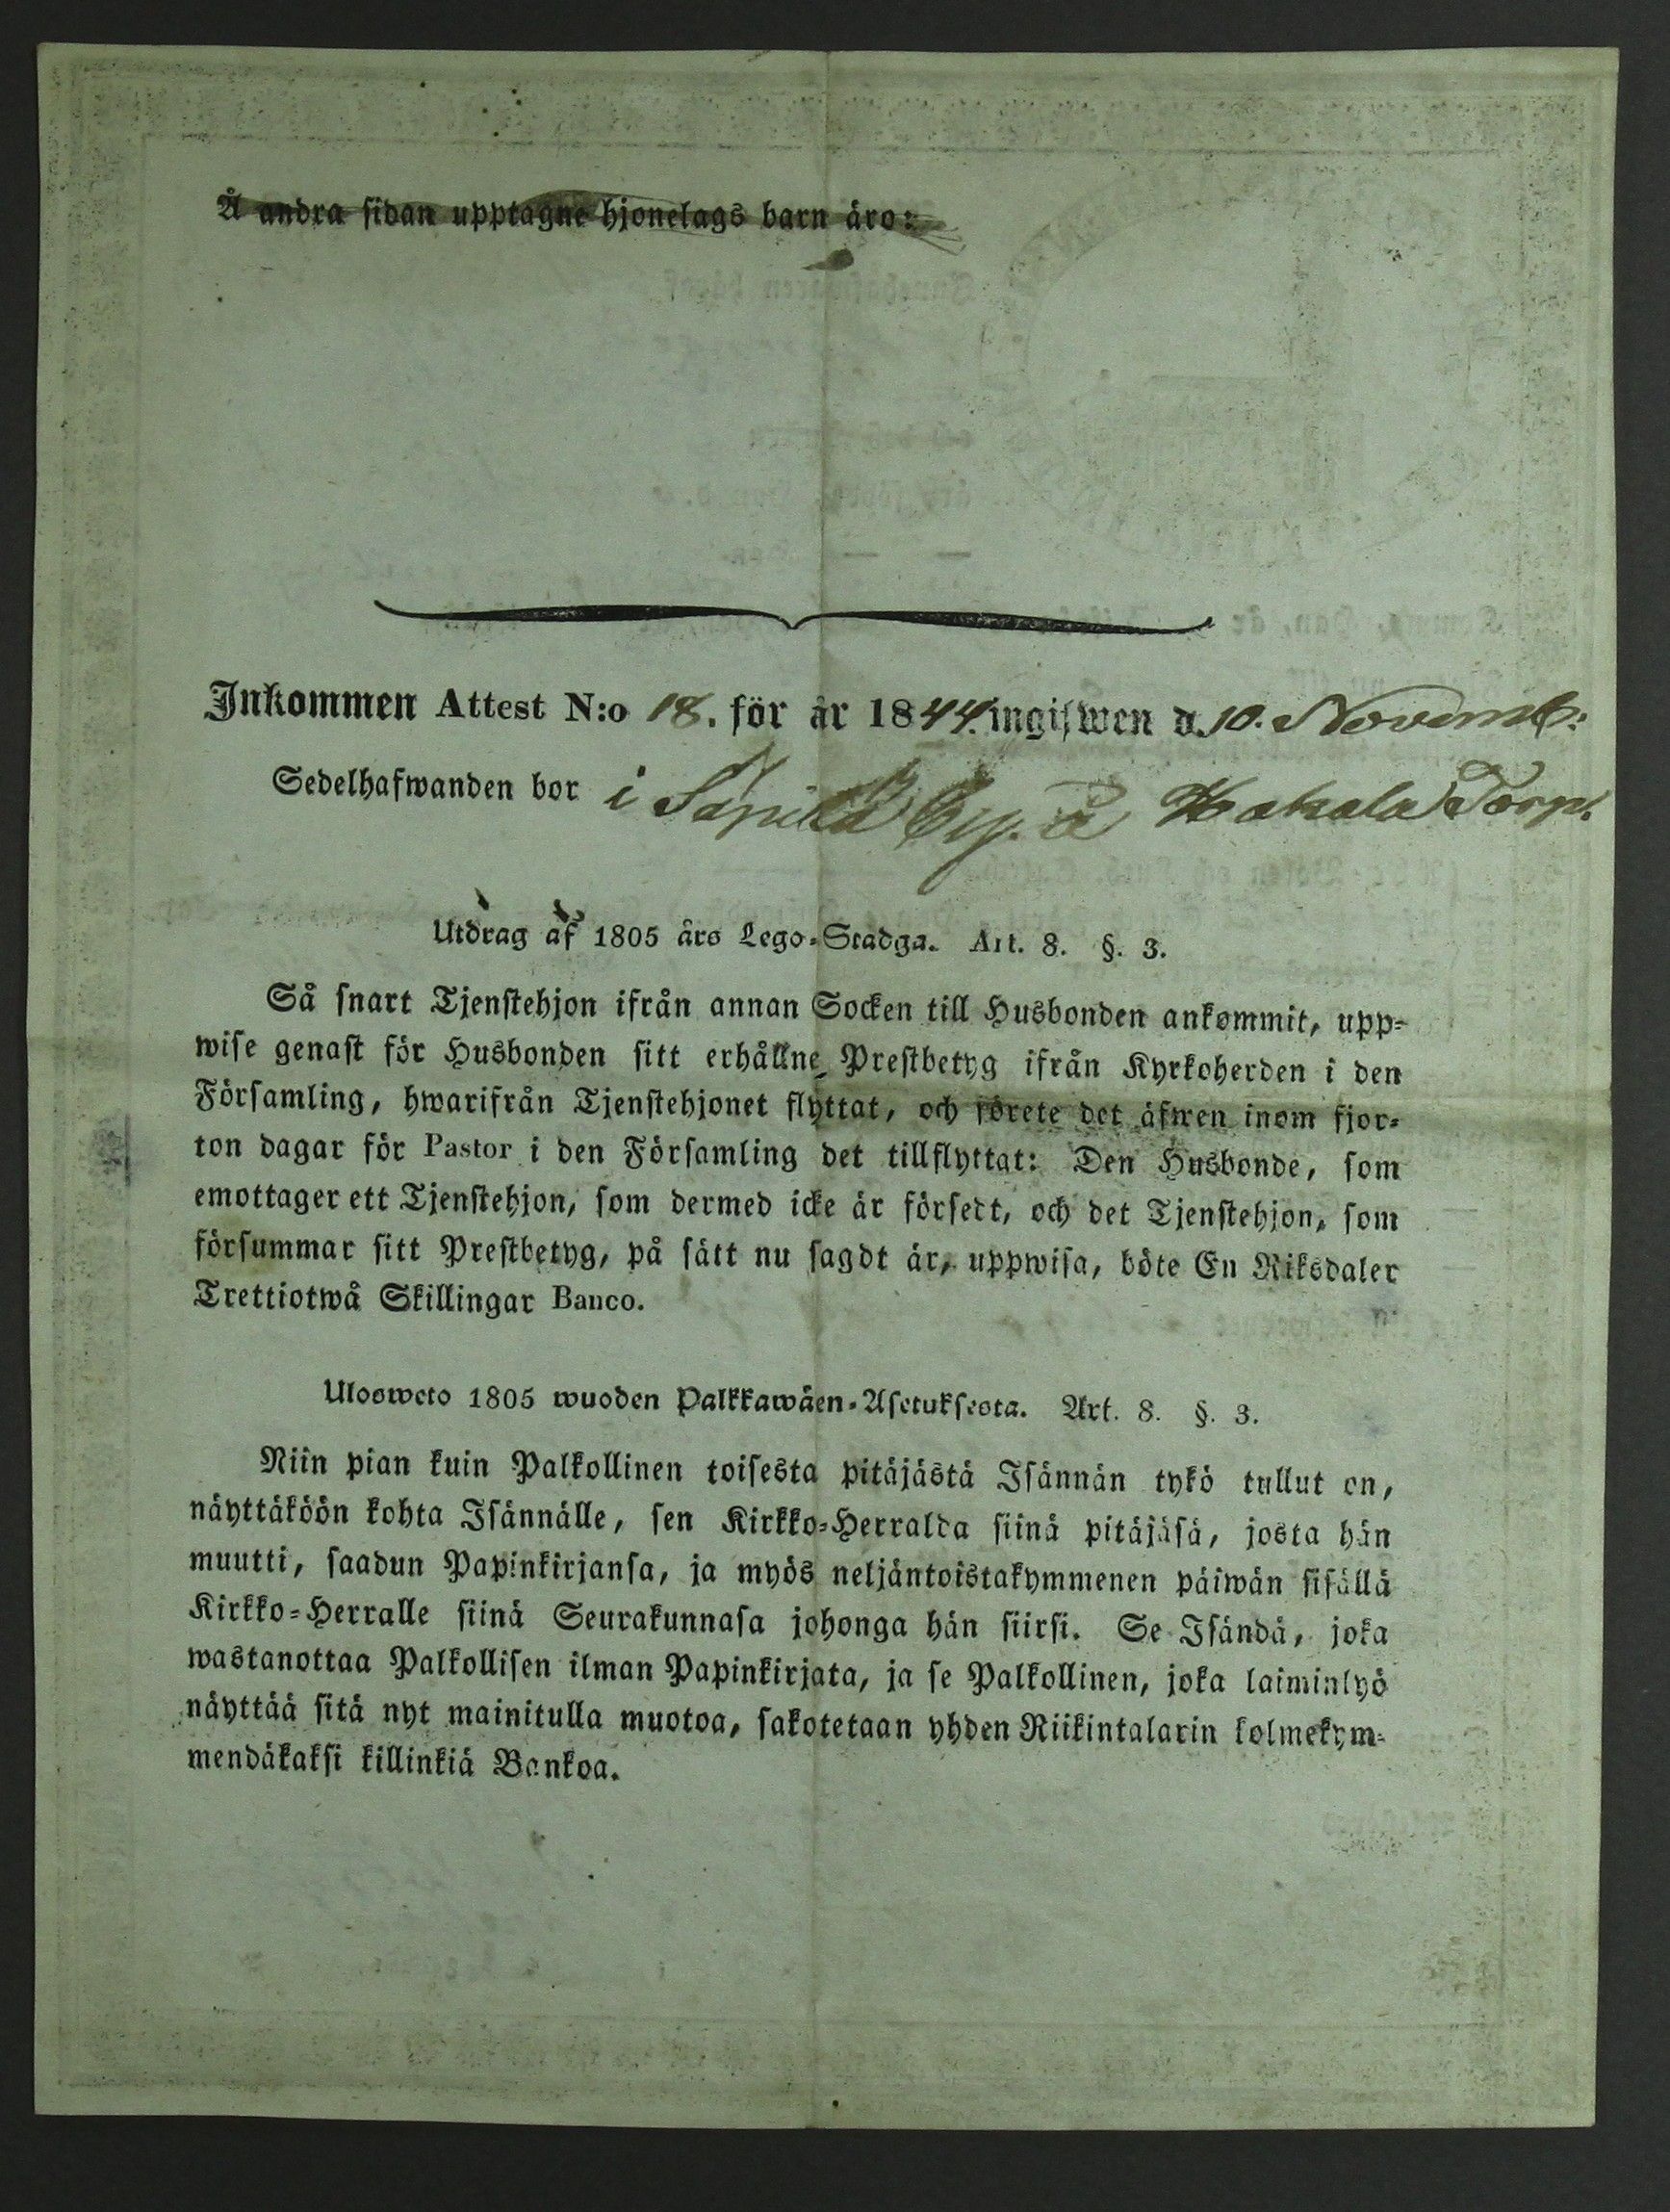 Å andra sidan upptagne hjonelags barn äro:
Inkommen Attest N:o 18. för år 1844. ingifwen d. 10. Novemb:
Sedelhafwanden bor i Säpilä By. å Hakala Torp.
Utdrag af 1805 års Lego-Stadga. Art. 8. §. 3.
Så snart Tjenstehjon ifrån annan Socken till Husbonden ankommit, upp-
wise genast för Husbonden sitt erhållne Prestbetyg ifrån Kyrkoherden i den
Församling, hwarifrån Tjenstehjonet flyttat, och förete det äfwen inom fjor-
ton dagar för Pastor i den Församling det tillflyttat: Den Husbonde, som
emottager ett Tjenstehjon, som dermed icke är försedt, och det Tjenstehjon, som
försummar sitt Prestbetyg, på sätt nu sagdt är, uppwisa, böte En Riksdaler
Trettiotwå Skillingar Banco.
Ulosweto 1805 wuoden Palkkawäen-Asetuksesta. Art. 8. §. 3.
Niin pian kuin Palkollinen toisesta pitäjästä Isännän tykö tullut on,
näyttäköön kohta Isännälle, sen Kirkko-Herralda siinä pitäjäsä, josta hän
muutti, saadun Papinkirjansa, ja myös neljäntoistakymmenen päiwän sisällä
Kirkko-Herralle siinä Seurakunnasa johonga hän siirsi. Se Isändä, joka
wastanottaa Palkollisen ilman Papinkirjata, ja se Palkollinen, joka laiminlyö
näyttää sitä nyt mainitulla muotoa, sakotetaan yhden Riikintalarin kolmekym-
mendäkaksi killinkiä Bankoa.